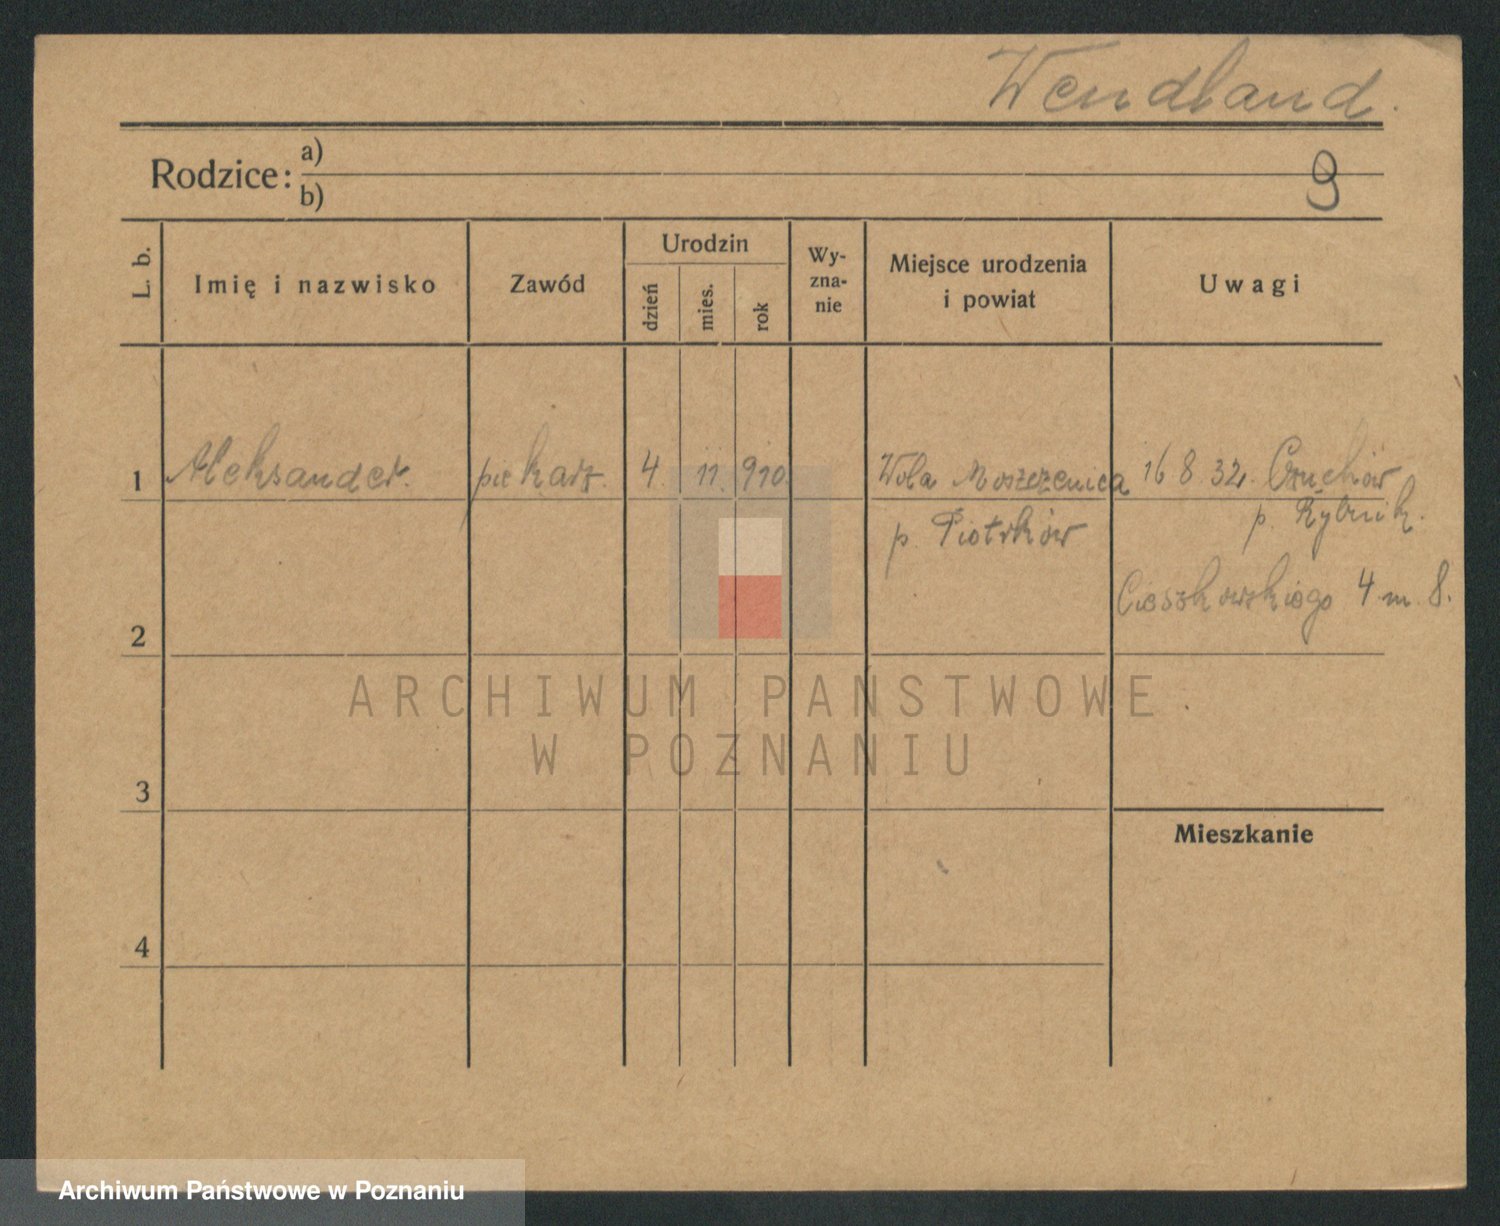 Wendland.
Rodzice: a)
b)
9
L. b.
Imię i nazwisko
Zawód
Urodzin
dzień
mies.
rok
Wy-
zna-
nie
Miejsce urodzenia
i powiat
Uwagi
1 Aleksander. piekarz. 4. 11. 910. Wola Moszczenica 16 8. 32. Czuchów
p. Piotrków p. Rybnik.
Cieszkowskiego 4 m 8.
2
3
Mieszkanie
4
ARCHIWUM PAŃSTWOWE
W POZNANIU
Archiwum Państwowe w Poznaniu